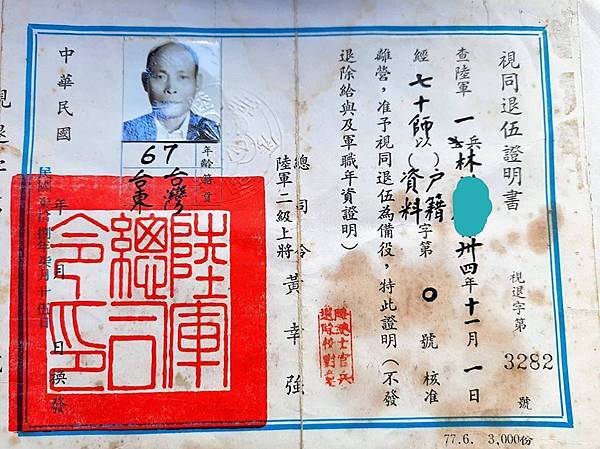 視同退伍證明書
視退字第3282號
查陸軍一兵林
卅四年十一月一日
經七十師以(戶籍資料)字第0號核准
離營,准予視同退伍為備役,特此證明(不發
退除給與及軍職年資證明)
總司令
陸軍二級上將黃幸強
年齡籍貫
67
台灣
台東
中華民國
年 月 日換發
陸軍
總司
令印
77.6. 3,000份